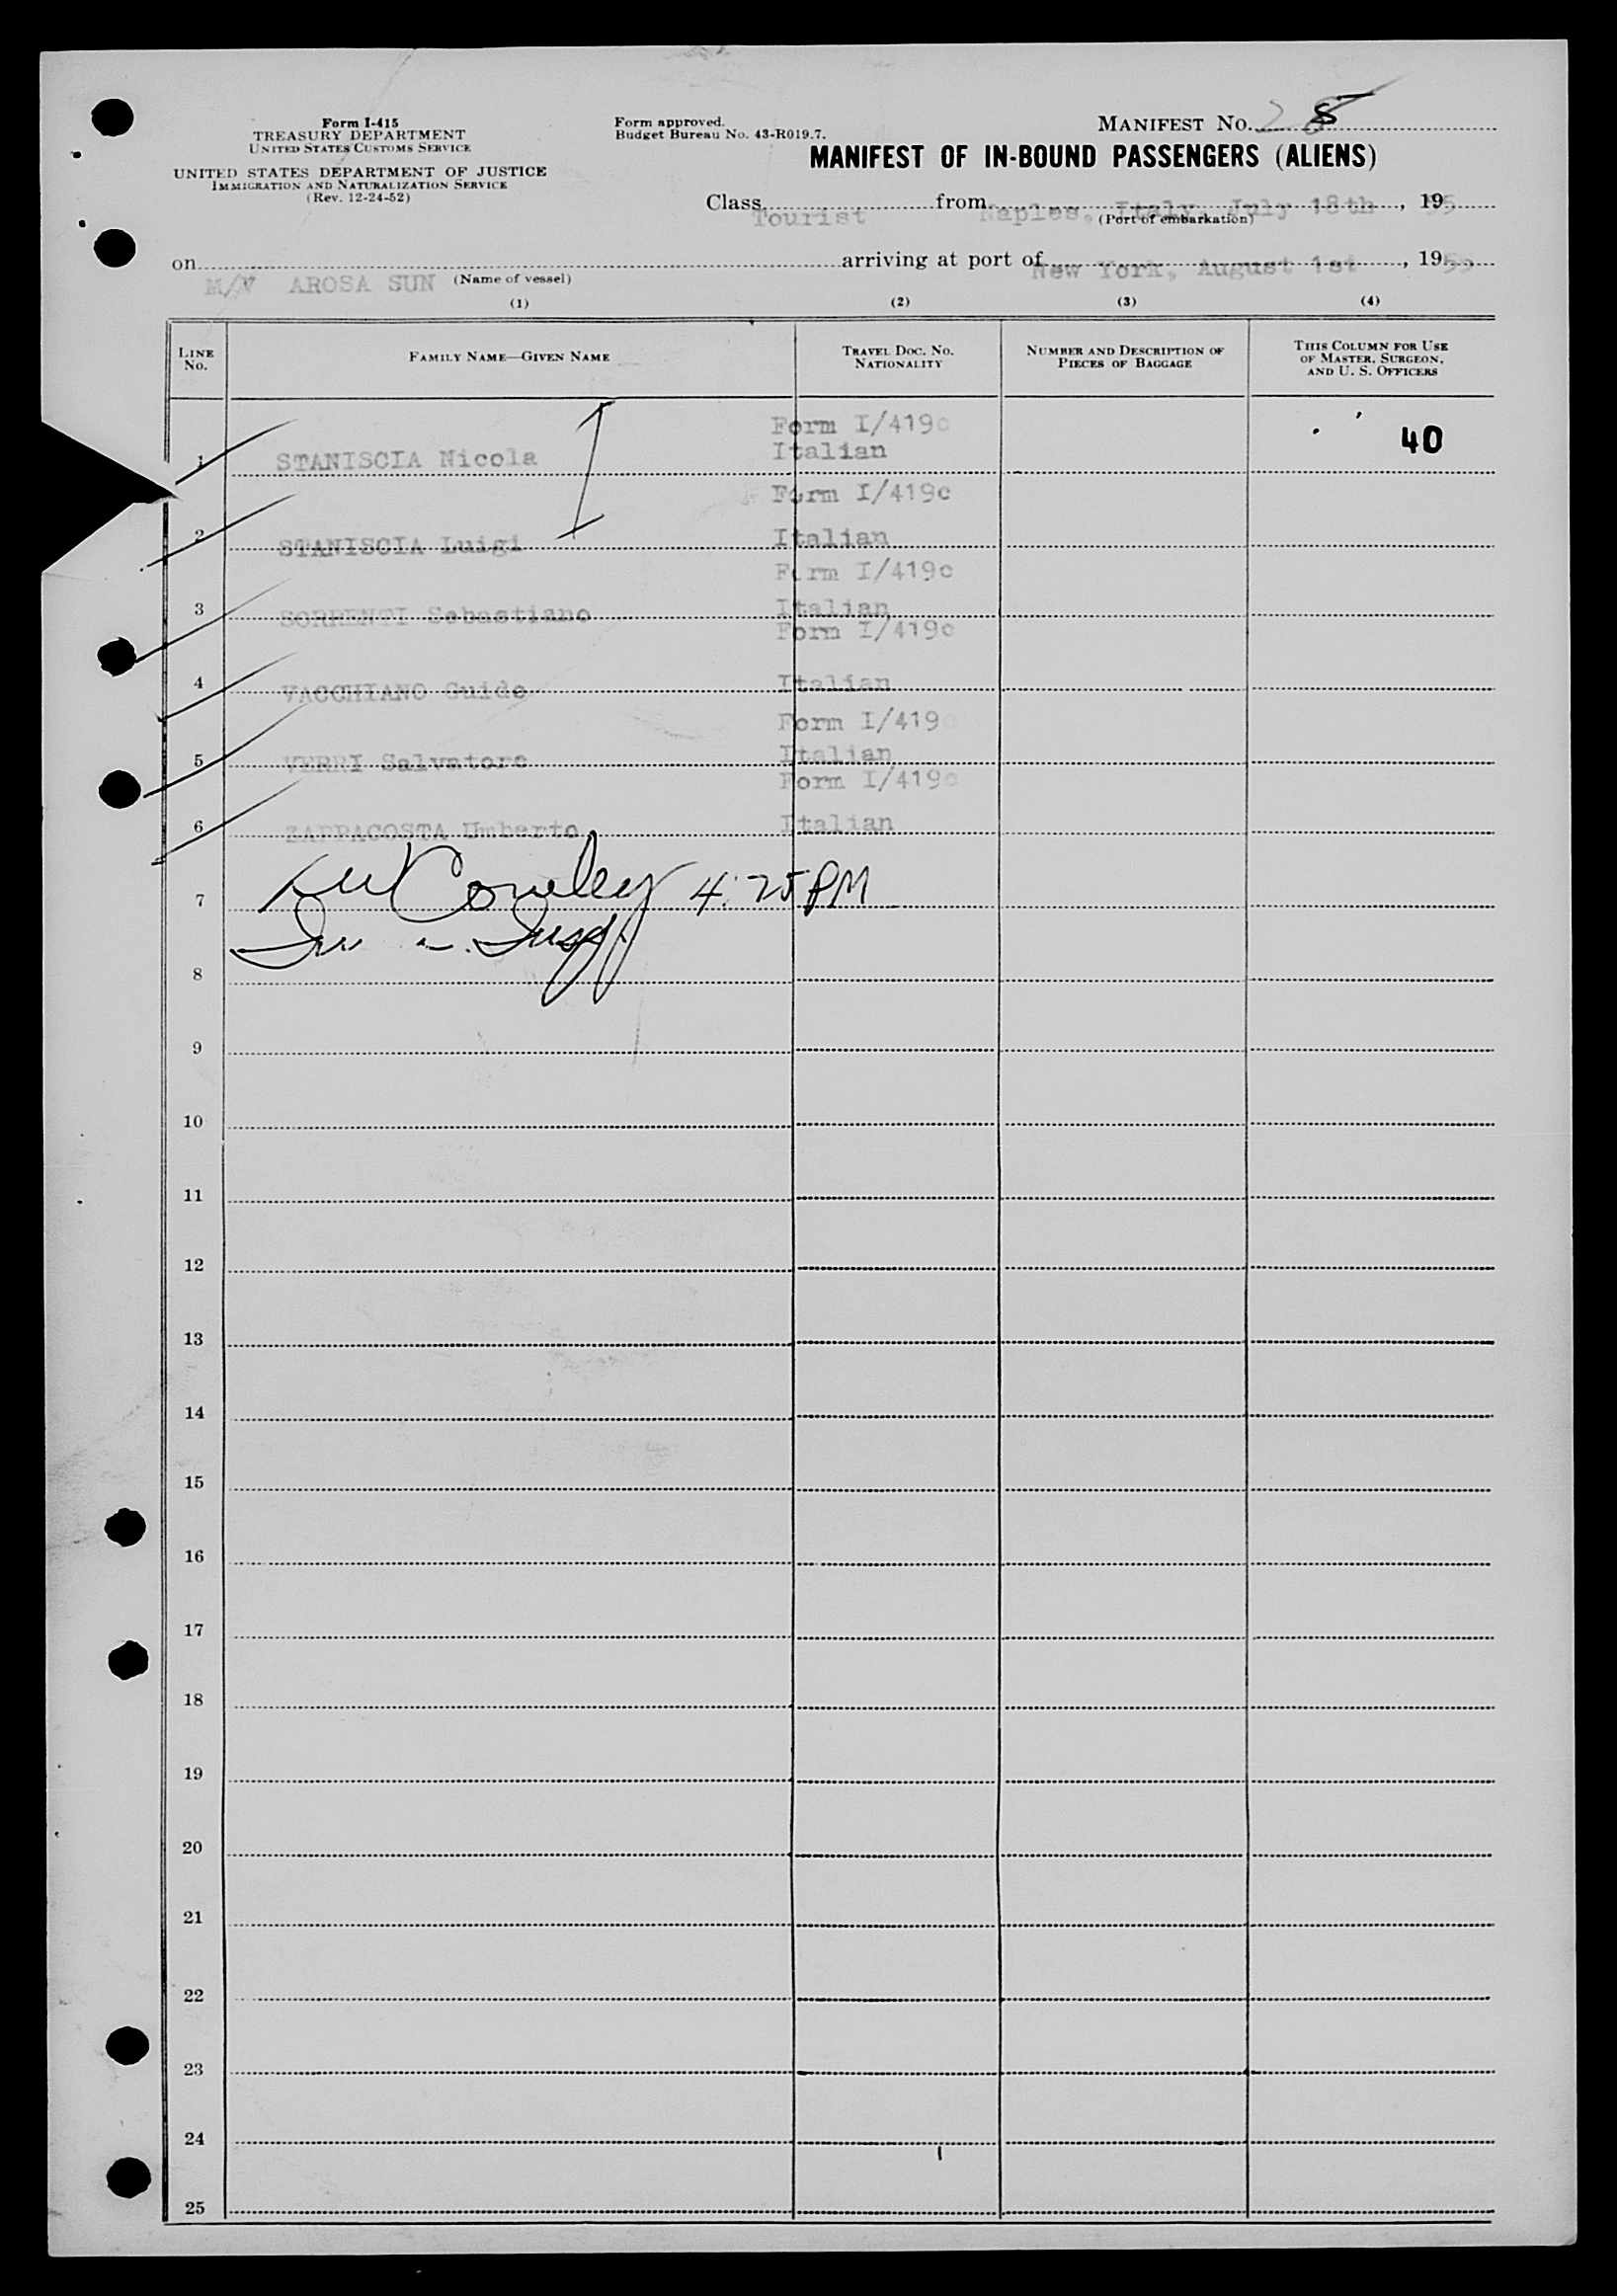 Form I-415
TREASURY DEPARTMENT
UNITED STATES CUSTOMS SERVICE
UNITED STATES DEPARTMENT OF JUSTICE
IMMIGRATION AND NATURALIZATION SERVICE
(Rev. 12-24-52)
Form approved.
Budget Bureau No. 43-R019.7.
MANIFEST NO. 8
MANIFEST OF IN-BOUND PASSENGERS (ALIENS)
Class Tourist from Naples, Italy, July 18th, 1955
(Port of embarkation)
on M/V AROSA SUN arriving at port of New York, August 1st, 1955
(Name of vessel)
(1) (2) (3) (4)
LINE NO. FAMILY NAME—GIVEN NAME TRAVEL DOC. NO. NATIONALITY NUMBER AND DESCRIPTION OF PIECES OF BAGGAGE THIS COLUMN FOR USE OF MASTER, SURGEON, AND U. S. OFFICERS
Form I/419c
1 STANISCIA Nicola Italian 40
Form I/419c
2 STANISCIA Luigi Italian
Form I/419c
3 SORRENTI Sebastiano Italian
Form I/419c
4 VACCHIANO Guido Italian
Form I/419
5 VERRI Salvatore Italian
Form I/419c
6 ZAPPACOSTA Umberto Italian
7 4:25 PM
8
9
10
11
12
13
14
15
16
17
18
19
20
21
22
23
24
25